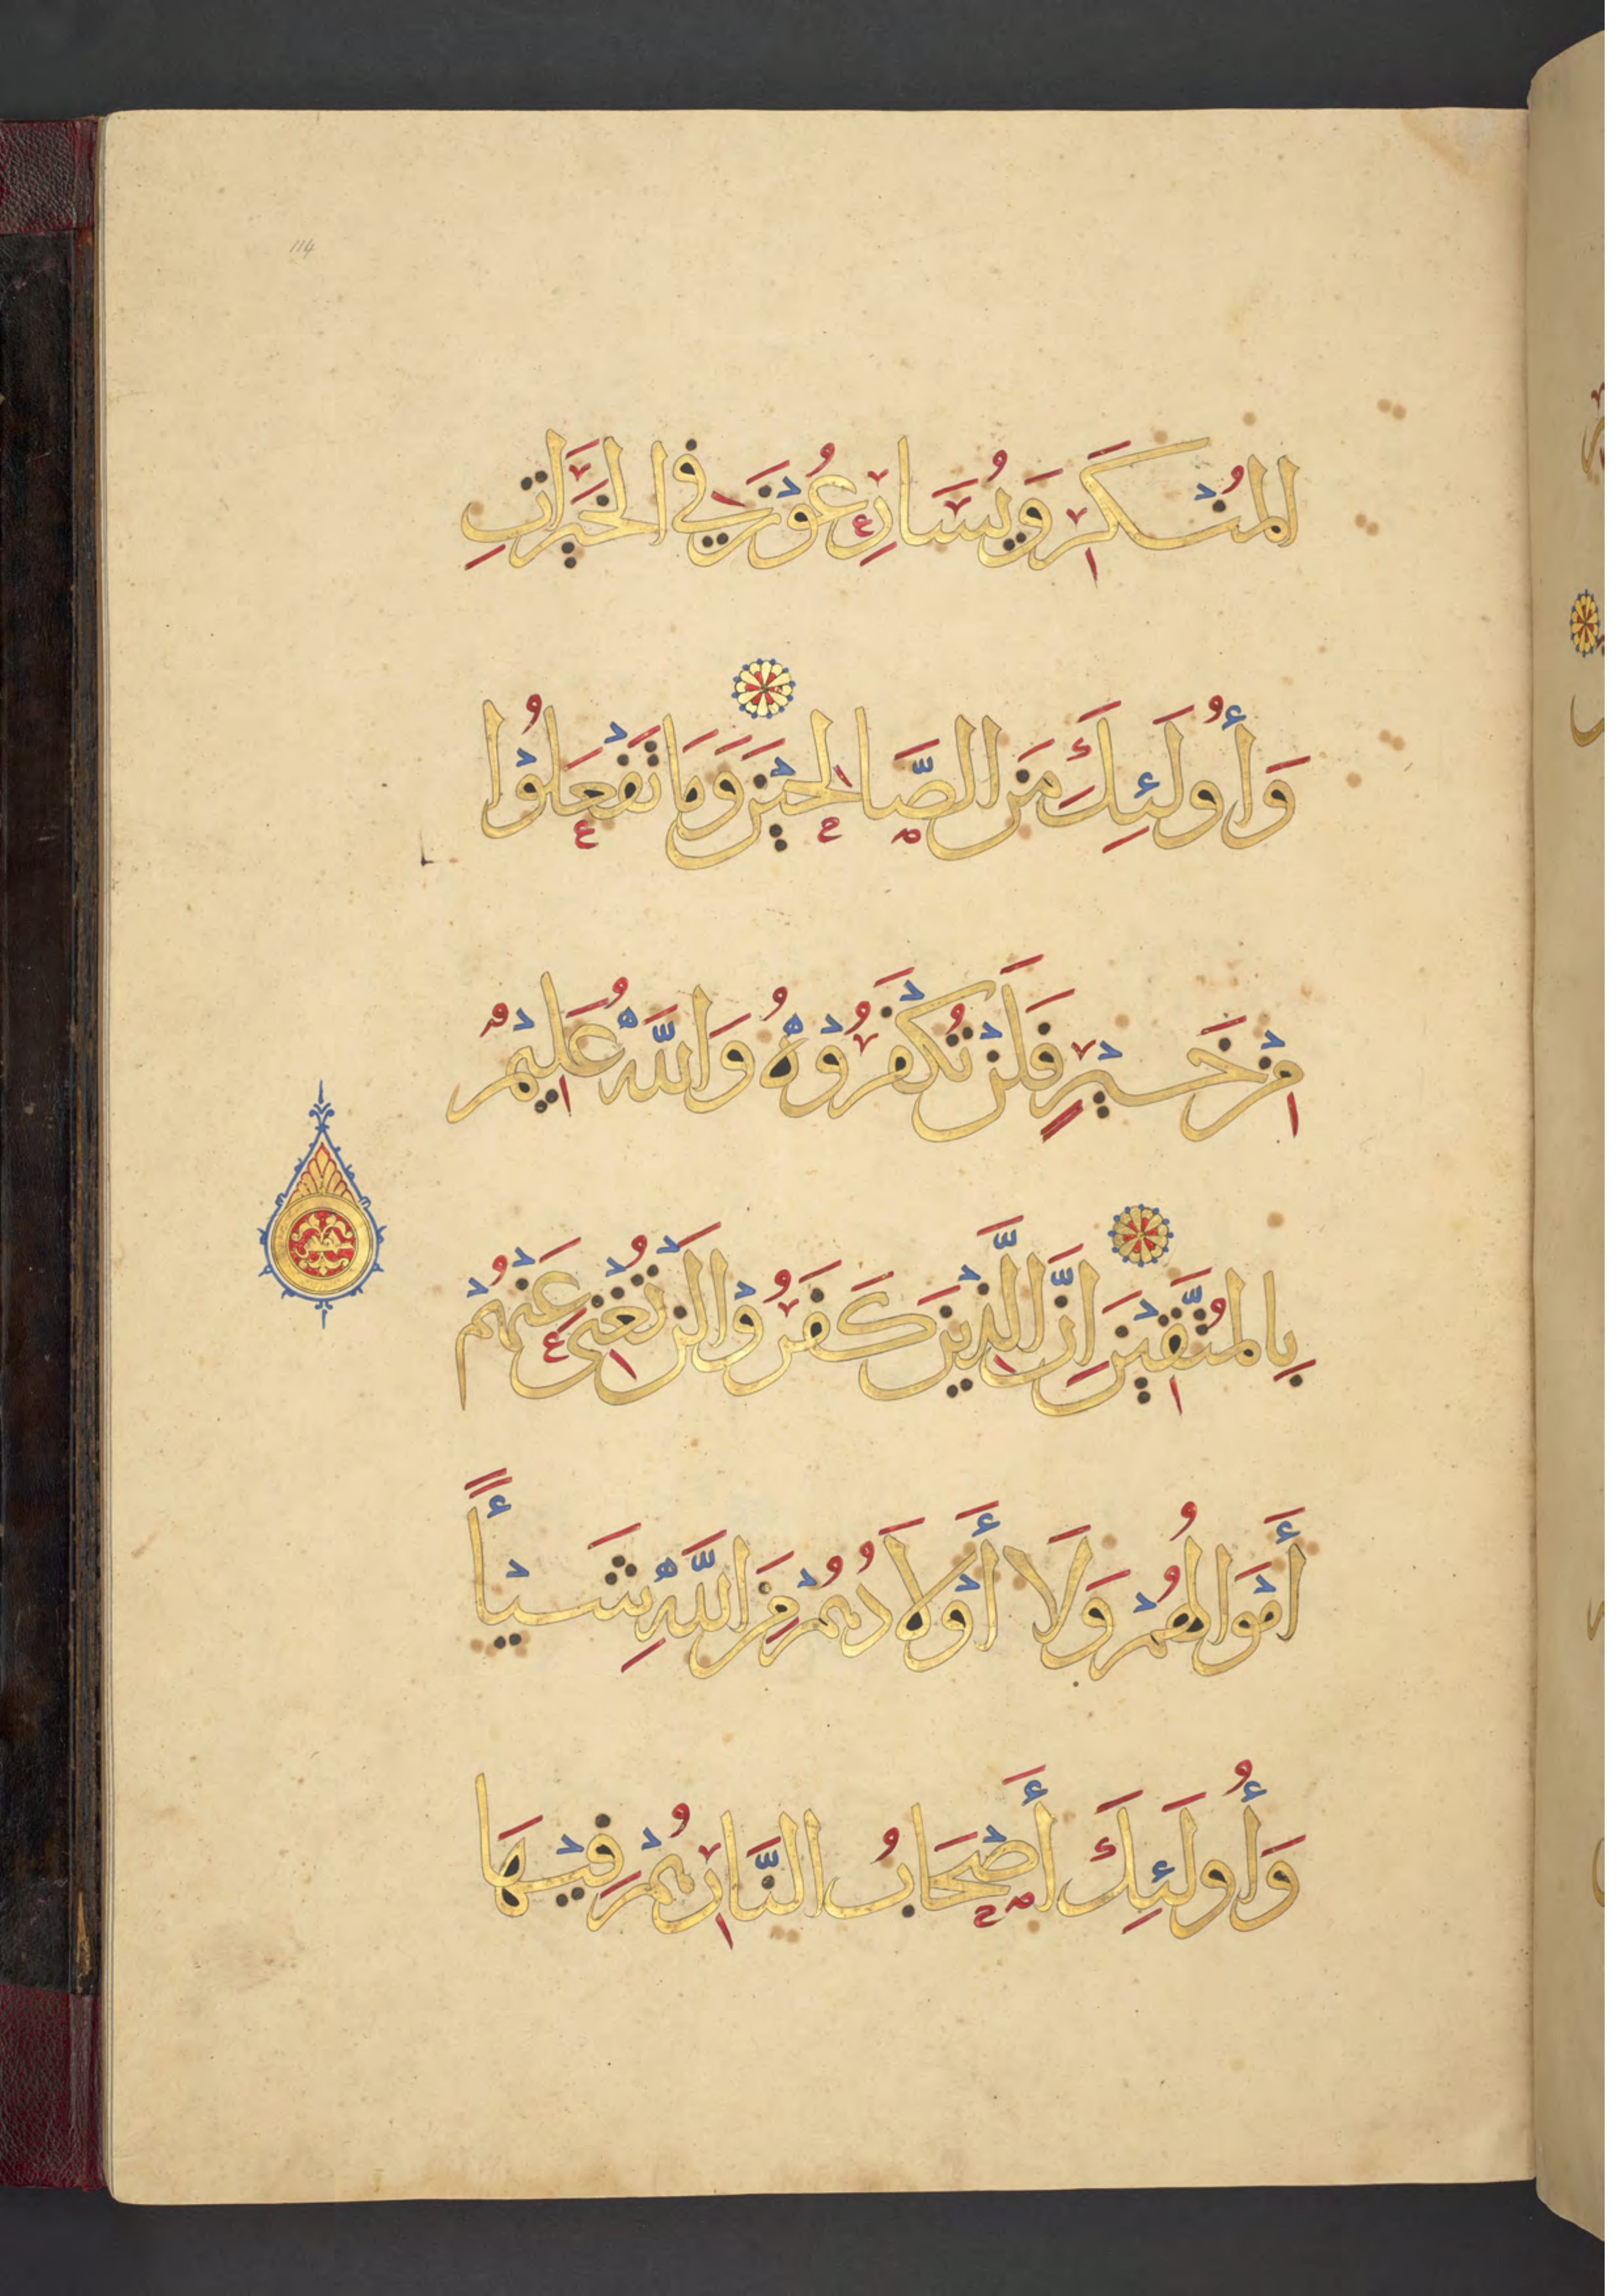 114
المُنْكَرِ وَيُسَارِعُوْنَ فِي الخَيْرَاتِ
وَأُولَئِكَ مِنَ الصَّالِحِيْنَ وَمَا تَفْعَلُوْا
مِنْ خَيْرٍ فَلَنْ تُكْفَرُوْهُ وَاللَّهُ عَلِيْمٌ
بِالمُتَّقِيْنَ اِنَّ الَّذِيْنَ كَفَرُوْا لَنْ تُغْنِيَ عَنْهُمْ
أَمْوَالُهُمْ وَلَا أَوْلَادُهُمْ مِنَ اللَّهِ شَيْأً
وَأُولَئِكَ أَصْحَابُ النَّارِ هُمْ فِيْهَا